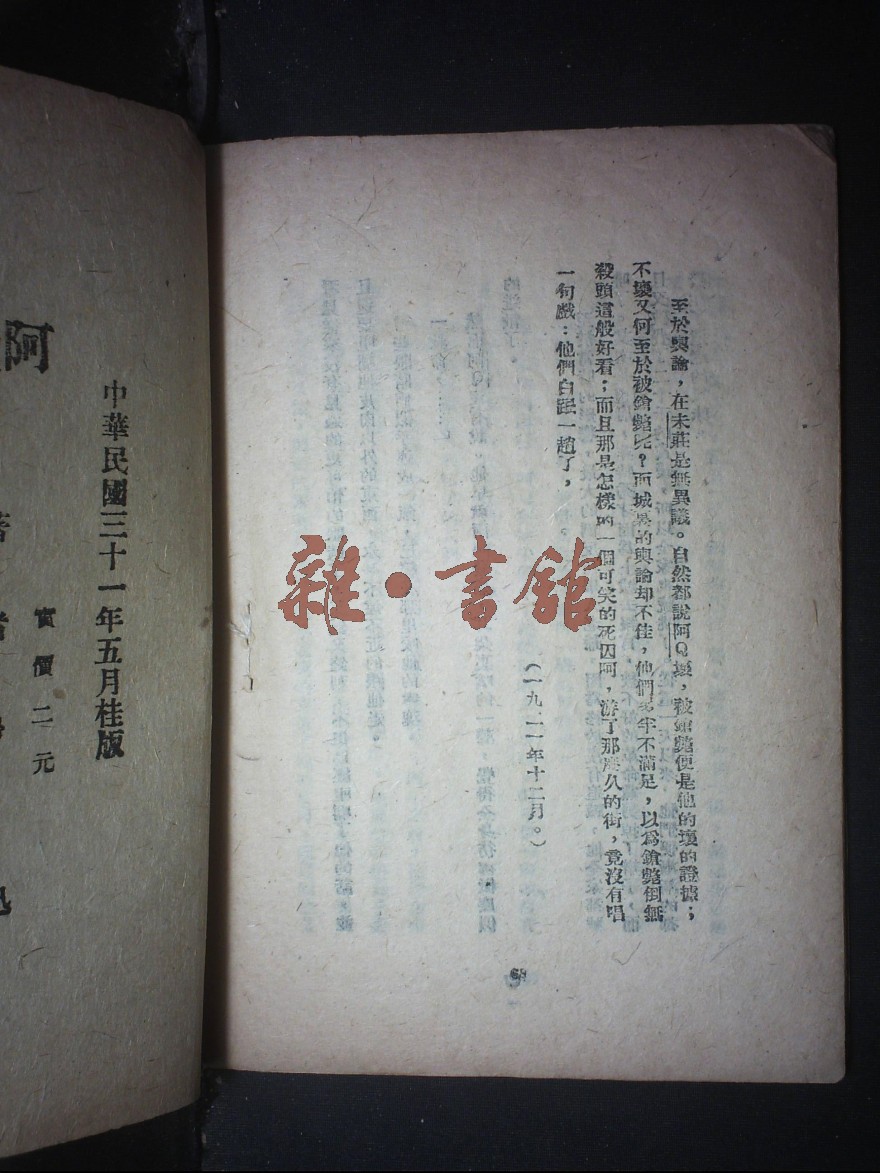 至於輿論，在未莊是無異議。自然都說阿Q壞，被鎗斃便是他的壞的證據；
不壞又何至於被鎗斃呢？而城裏的輿論却不佳，他們多半不滿足，以爲鎗斃倒無
殺頭這般好看；而且那是怎樣的一個可笑的死囚阿，游了那麽久的街，竟沒有唱
一句戲：他們白跟一趟了，
（一九二一年十二月。）
68
雜·書館
中華民國三十一年五月桂版
實價二元
阿
著者